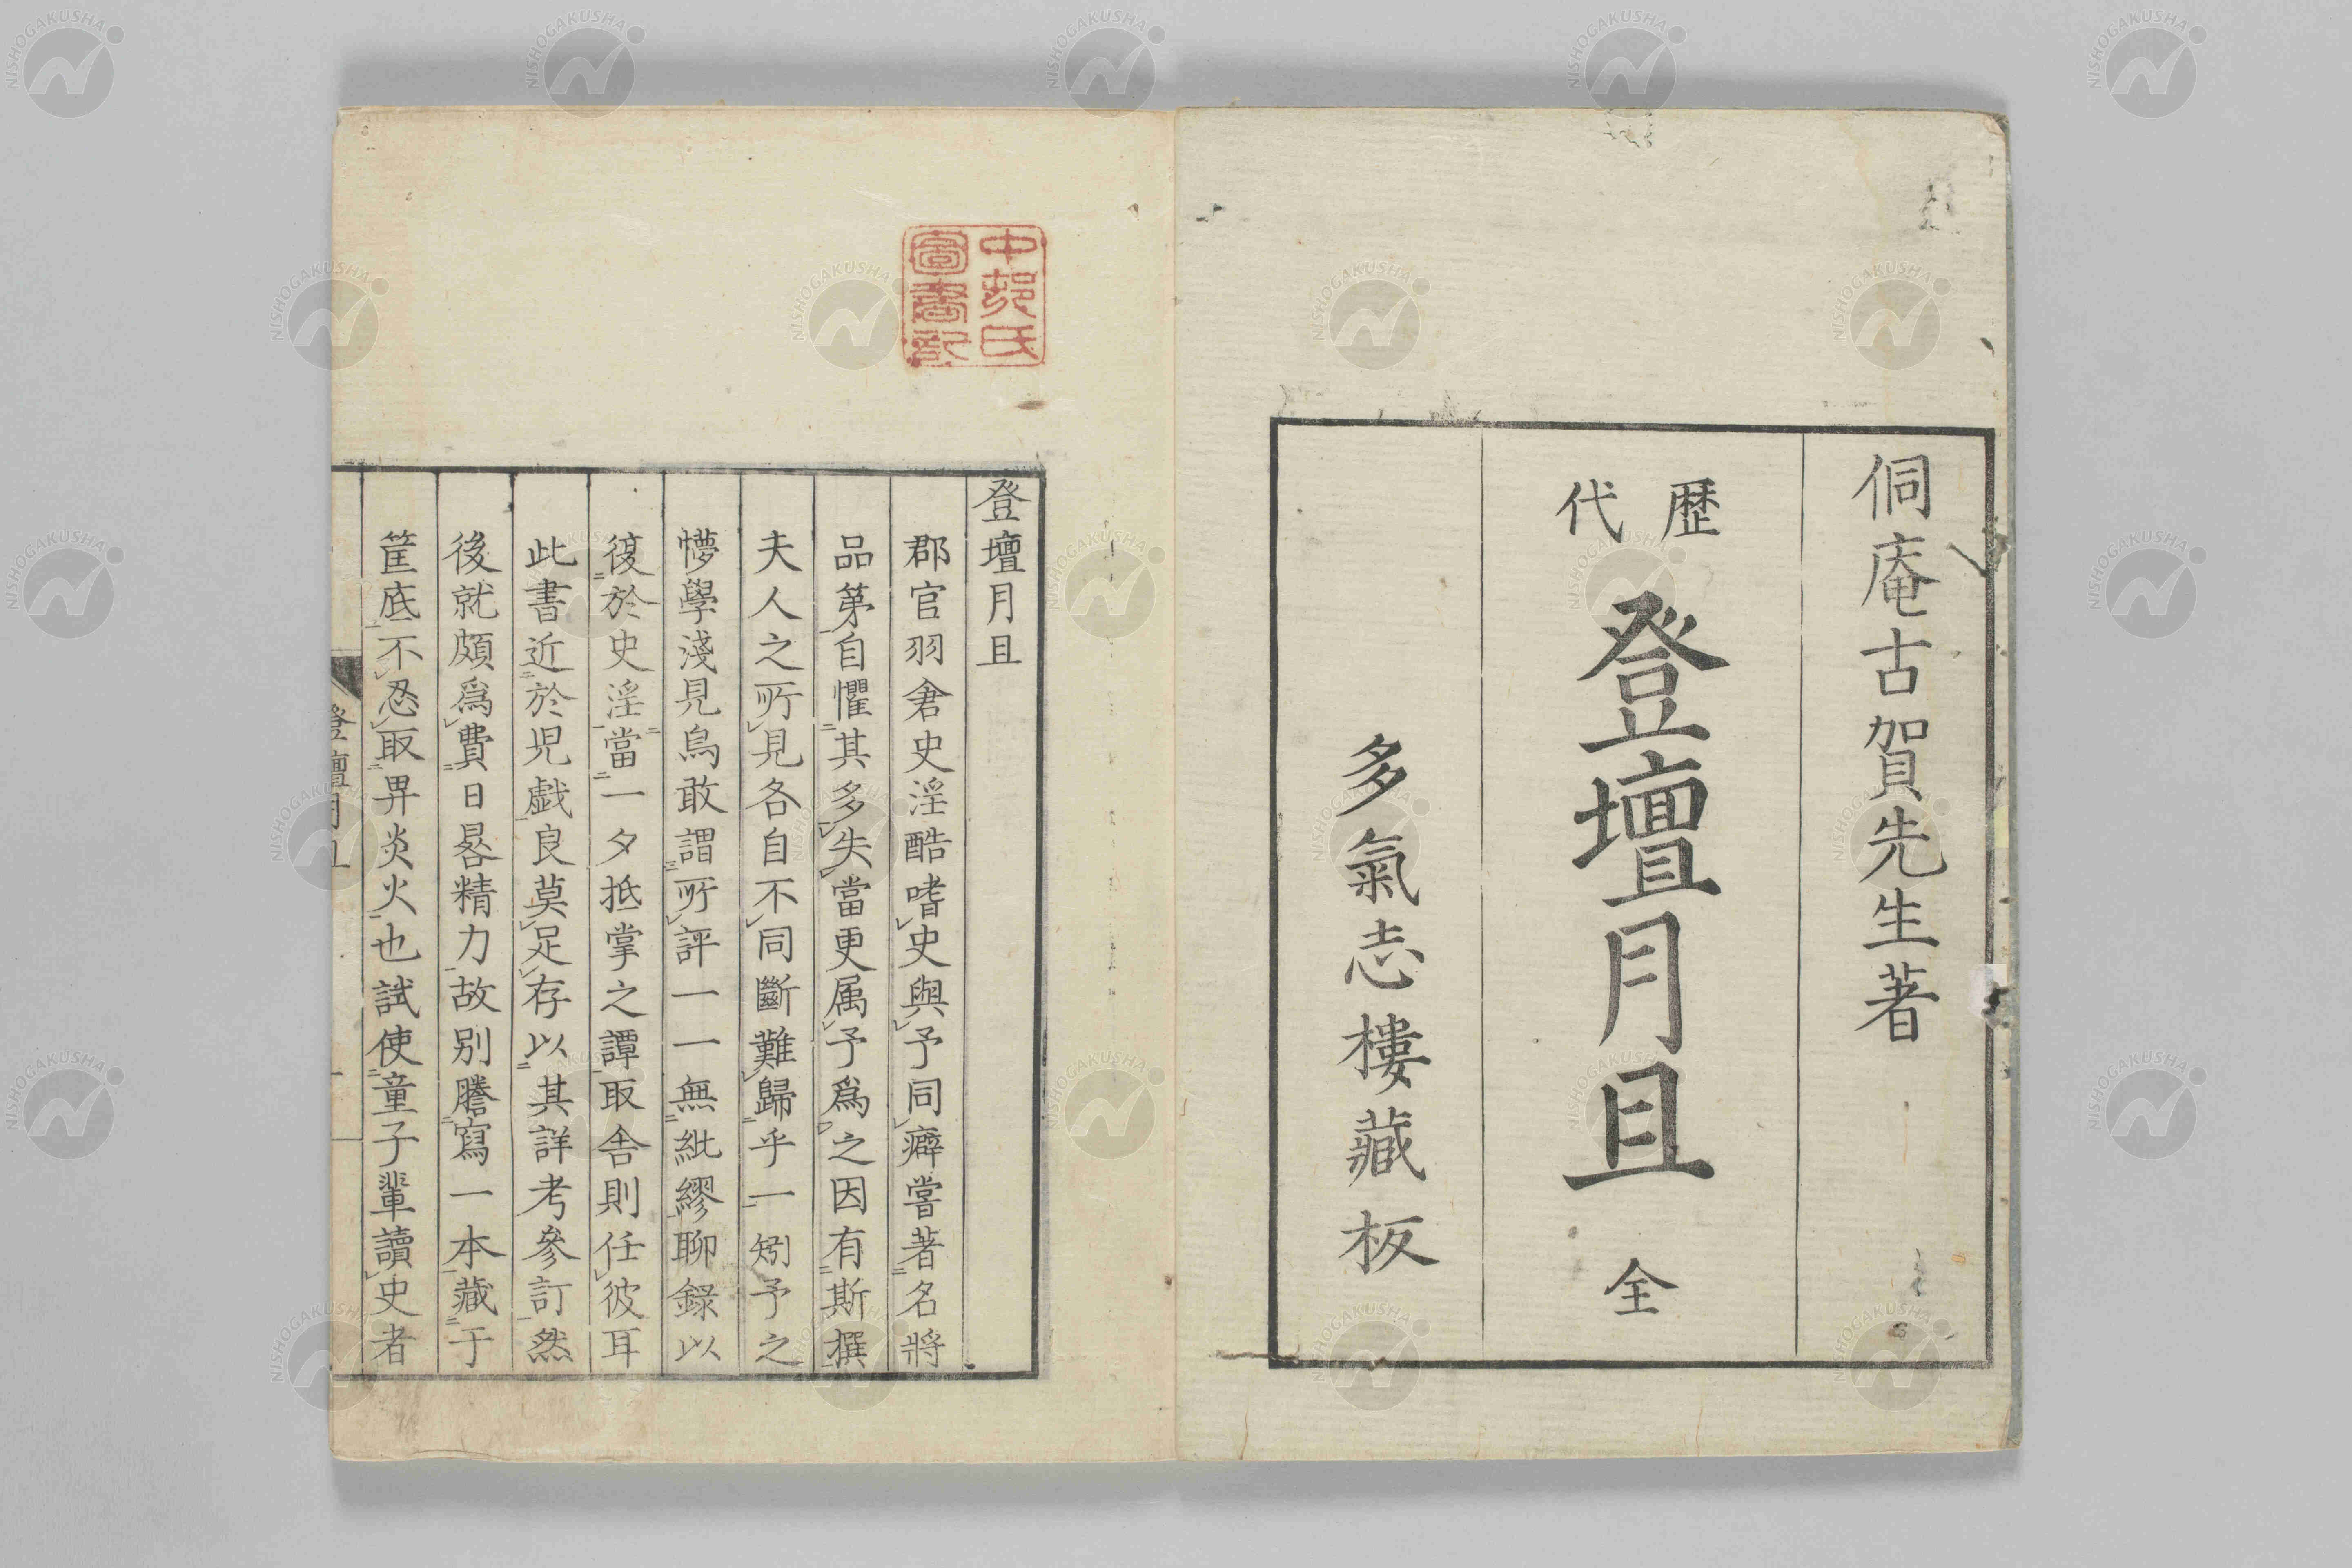 侗庵古賀先生著
歷代
登壇月旦 全
多氣志樓藏板
中邨氏
圖書記
登壇月旦
郡官羽倉史淫酷嗜史與予同癖嘗著名將
品第自懼其多失當更属予爲之因有斯撰
夫人之所見各自不同斷難歸乎一矧予之
懵學淺見烏敢謂所評一一無紕繆聊錄以
復於史淫當一夕抵掌之譚取舍則任彼耳
此書近於児戯良莫足存以其詳考參訂然
後就頗爲費日晷精力故別謄寫一本藏于
筐底不忍取畀炎火也試使童子輩讀史者
登壇月旦
一
NISHOGAKUSHA